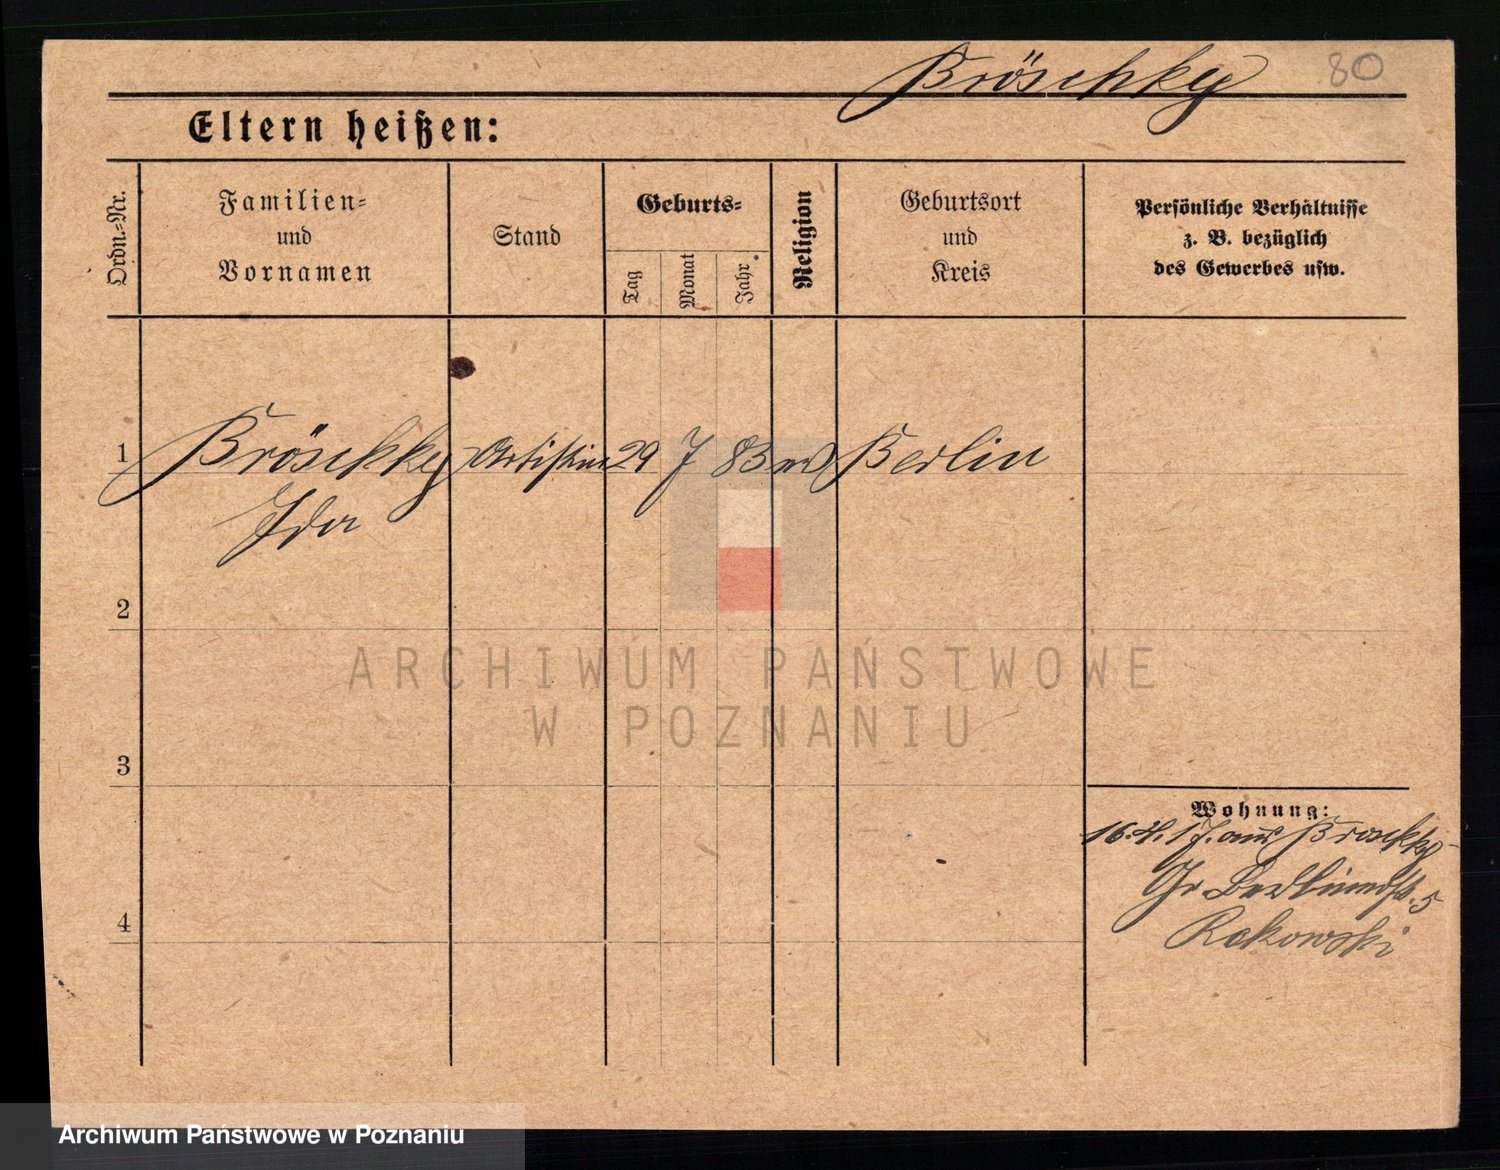 Bröschky 80
Eltern heißen:
Ordn.-Nr.
Familien-
und
Vornamen
Stand
Geburts-
Tag
Monat
Jahr
Religion
Geburtsort
und
Kreis
Persönliche Verhältnisse
z. B. bezüglich
des Gewerbes usw.
1 Bröschky Artistin 29 7 83 Berlin
Ida
2
ARCHIWUM PAŃSTWOWE
W POZNANIU
3
Wohnung:
16. 4. 17. aus
5
Rakowski
4
Archiwum Państwowe w Poznaniu